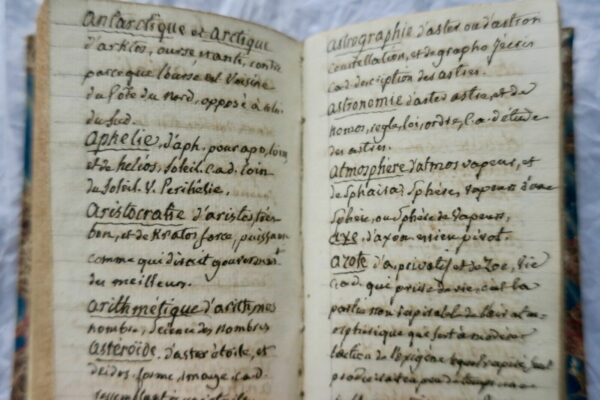 antarctique et arctique
d'arktos, ourse, et anti, contre
parceque l'ourse est voisine
du Pôle du Nord, opposé à celui
du Sud.
aphelie, d'aph. pour apo, loin
et de helios, soleil. c.a.d. loin
du soleil. V. Perihélie.
aristocratie d'aristos, très
bon, et de Kratos force, puissance
comme qui diroit gouvernement
du meilleur.
arithmétique d'arithmos
nombre, science des nombres
astéroïde, d'aster étoile, et
d'eidos, forme, image. c.a.d.
ressemblant à
astrographie d'aster ou d'astron
constellation, et de grapho j'écris
c.a.d. description des astres.
astronomie d'aster astre, et de
nomos, regle, loi, ordre, c.a. d'étude
des astres.
atmosphère d'atmos vapeur, et
de sphaira sphère, vapeurs d'une
sphère, ou sphère de vapeurs,
axe, d'axon essieu pivot.
azote d'a, privatif, et de Zoe, vie
c.a.d. qui prive de vie, c'est la
partie non respirable de l'air atmosphérique
que sert à modérer
l'action de l'oxigène